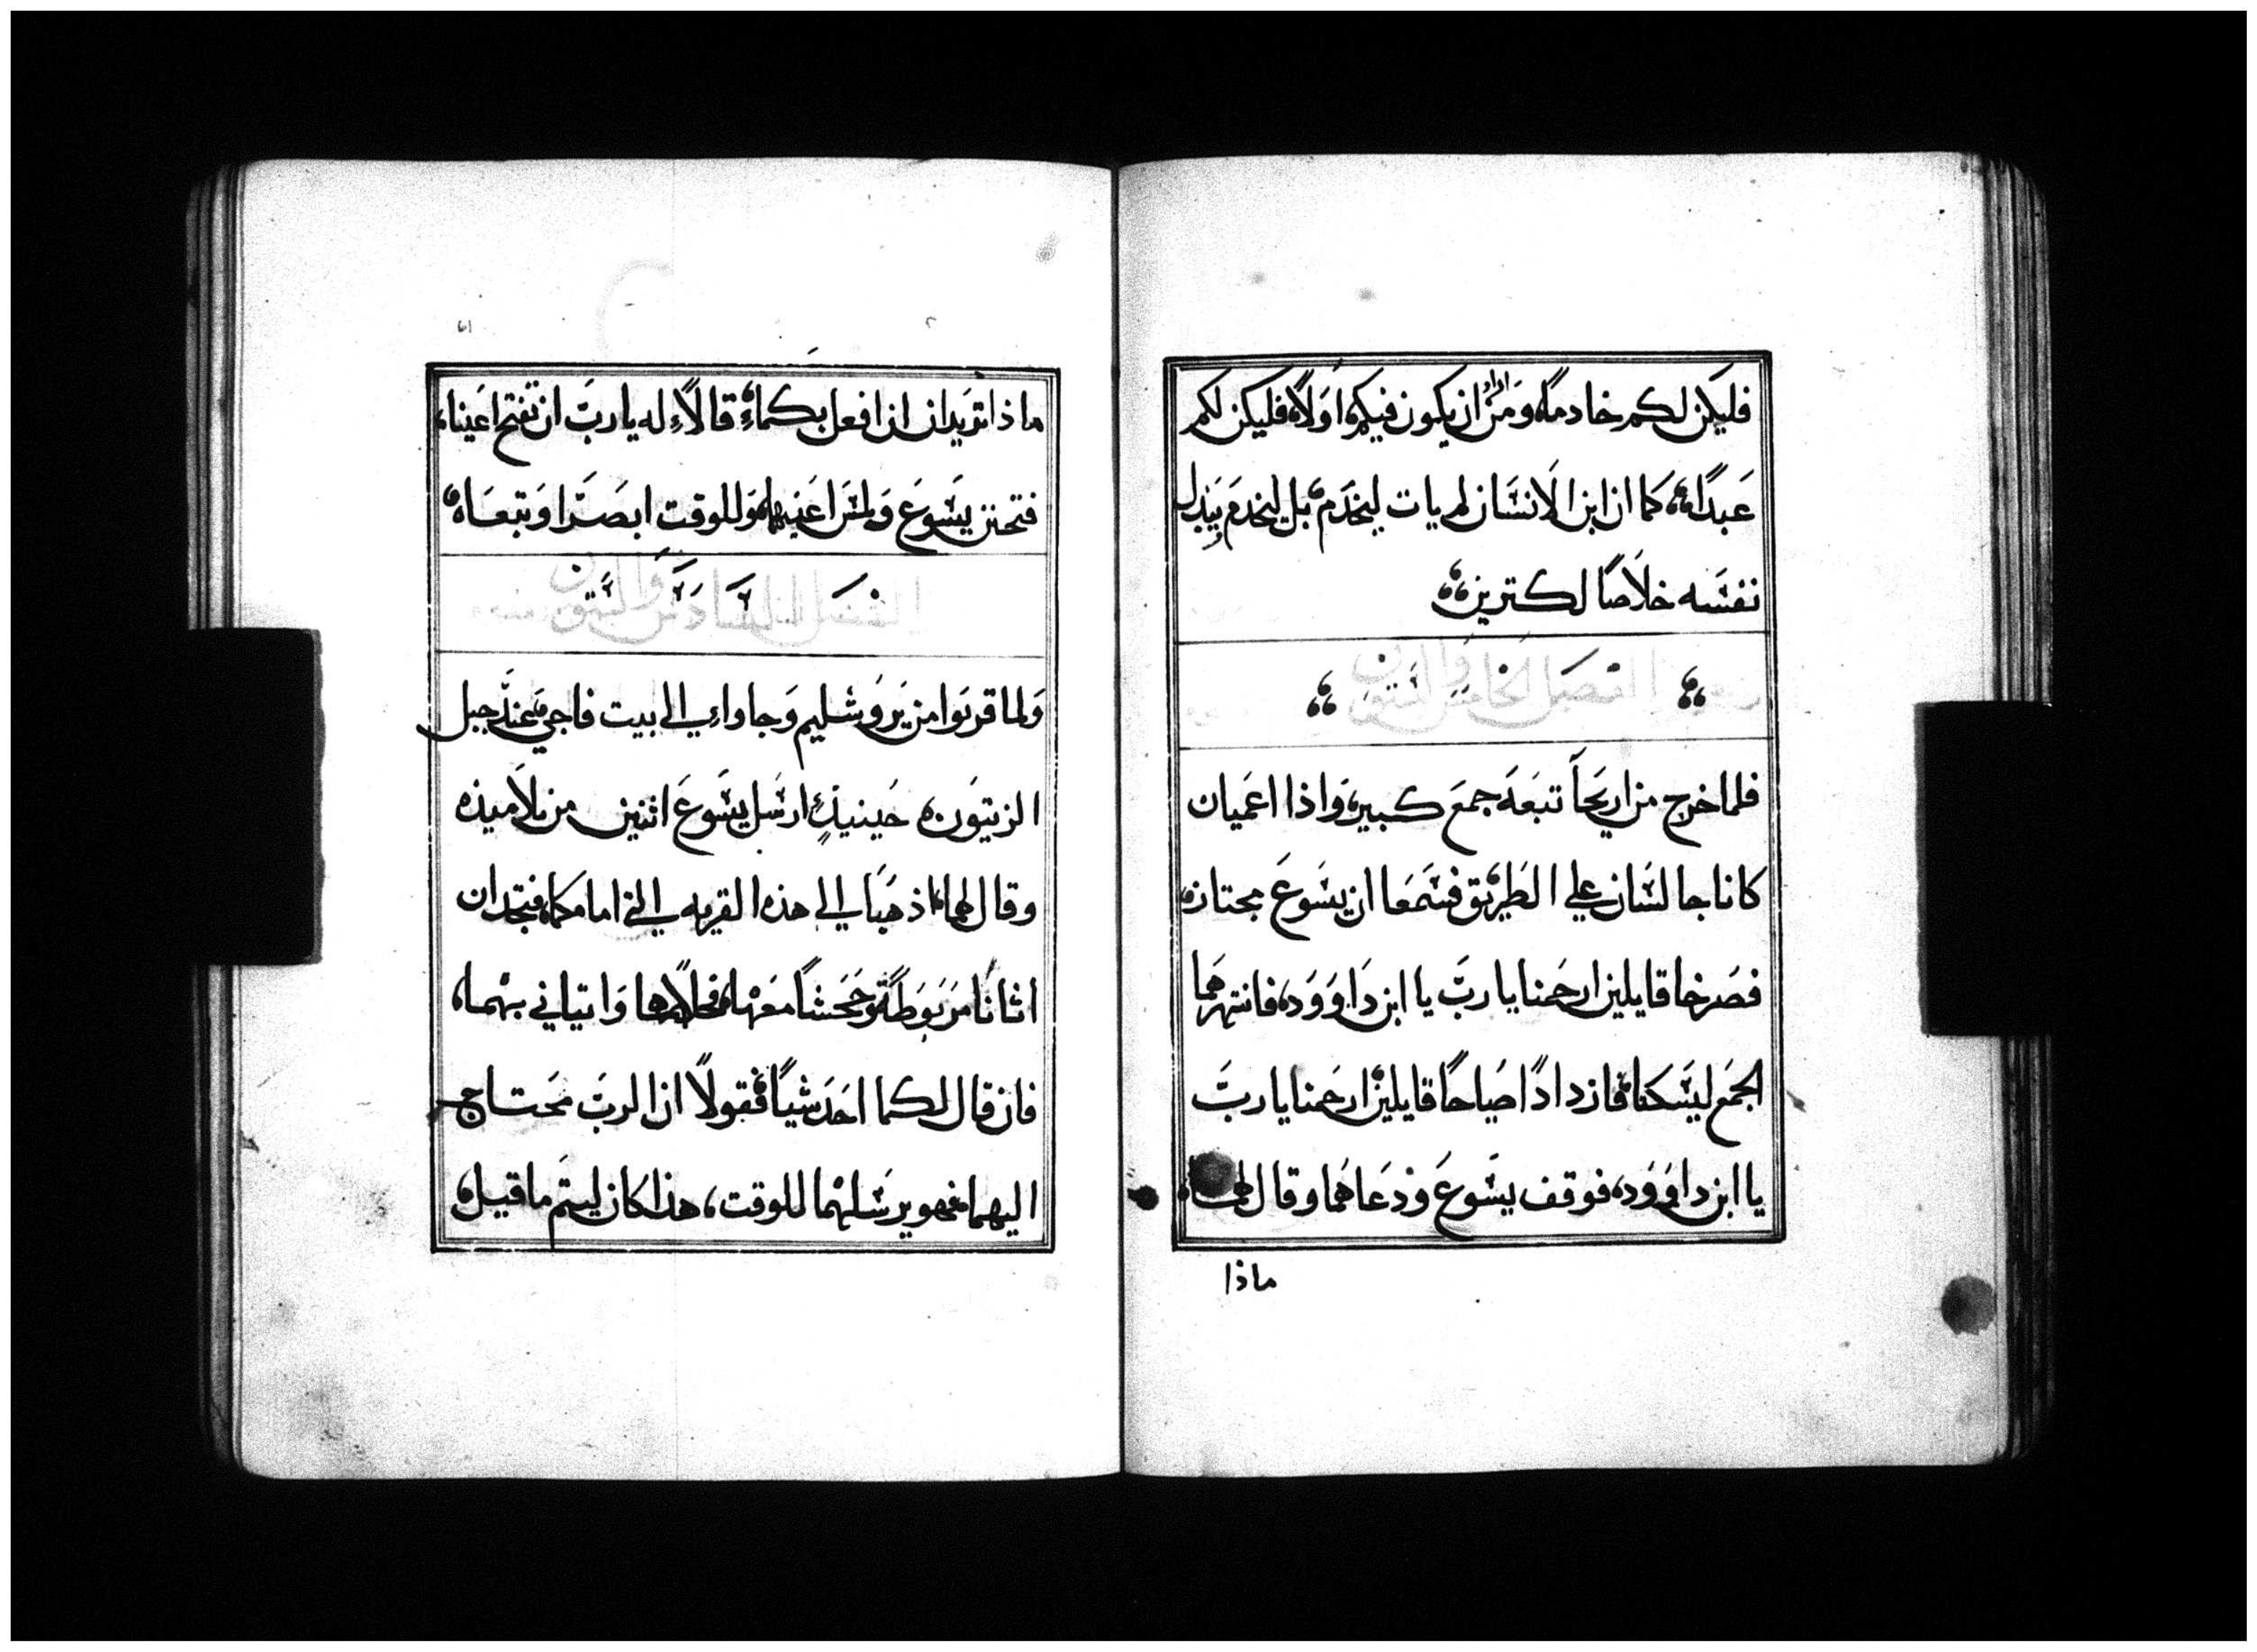 فليكن لكم خادمًا، ومن اراد ان يكون فيكم اولاً، فليكن لكم
عبدًا، كما ان ابن الانسان لم يات ليخدم، بل ليخدم ويبذل
نفسه خلاصًا لكثيرين
الفصل الخامس والستون
فلما خرج من اريحا تبعه جمع كبير، واذا اعميان
كانا جالسان علي الطريق فسمعا ان يسوع مجتاز،
فصرخا قايلين ارحمنا يا رب يا ابن داوود، فانتهرهما
الجمع ليسكتا، فازدادا صياحًا قايلين ارحمنا يا رب
يا ابن داوود، فوقف يسوع ودعاهما وقال لهما،
ماذا
٦١
ماذا تريدان ان افعل بكما، قالا له يا رب ان تفتح اعيننا،
فتحنن يسوع ولمس اعينهما، وللوقت ابصرا وتبعاه
الفصل السادس والستون
ولما قربوا من يروشليم وجاوا الي بيت فاجي، عند جبل
الزيتون، حينيذٍ ارسل يسوع اثنين من تلاميذه
وقال لهما، اذهبا الي هذه القريه التي امامكما، فتجدان
اتانًا مربوطةً وجحشًا معها، فحلاهما واتياني بهما،
فان قال لكما احد شيًا، فقولا ان الرب محتاج
اليهما، فهو يرسلهما للوقت، هذا كان ليتم ما قيل،